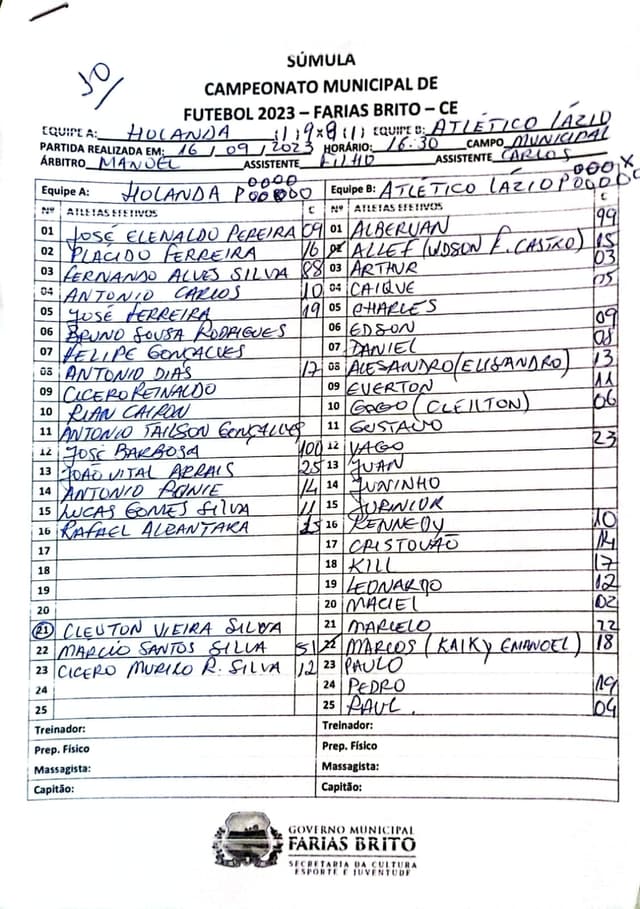 30/
SÚMULA
CAMPEONATO MUNICIPAL DE
FUTEBOL 2023 – FARIAS BRITO – CE
EQUIPE A: HOLANDA (1)9x9(1) EQUIPE B: ATLÉTICO LÁZIO
PARTIDA REALIZADA EM: 16/09/2023 HORÁRIO: 16:30 CAMPO MUNICIPAL
ÁRBITRO MANOEL ASSISTENTE FILHO ASSISTENTE CARLOS
Equipe A: HOLANDA Equipe B: ATLÉTICO LÁZIO
Nº ATLETAS EFETIVOS C Nº ATLETAS EFETIVOS C
01 JOSÉ ELENALDO PEREIRA 09 01 ALBERVAN 99
02 PLACIDO FERREIRA 16 02 ALLEF (WDSON F. CASTRO) 15
03 FERNANDO ALVES SILVA 88 03 ARTHUR 03
04 ANTONIO CARLOS 10 04 CAIQUE 05
05 JOSÉ FERREIRA 19 05 CHARLES
06 BRUNO SOUSA RODRIGUES 06 EDSON 09
07 FELIPE GONÇALVES 07 DANIEL 08
08 ANTONIO DIAS 17 08 ALESANDRO (ELISANDRO) 13
09 CICERO REINALDO 09 EVERTON 11
10 RIAN CAIRON 10 GOGO (CLEILTON) 06
11 ANTONIO TAILSON GONÇALVES 11 GUSTAVO
12 JOSÉ BARBOSA 100 12 YAGO 23
13 JOÃO VITAL ARRAIS 25 13 JUAN
14 ANTONIO RONIE 14 14 JUNINHO
15 LUCAS GOMES SILVA 11 15 JUNNIOR
16 RAFAEL ALCANTARA 16 KENNEDY 10
17 17 CRISTOVÃO 14
18 18 KILL 17
19 19 LEONARDO 12
20 20 MACIEL 02
21 CLEUTON VIEIRA SILVA 21 MARCELO 22
22 MARCIO SANTOS SILVA 51 22 MARCOS (KAIKY EMANOEL) 18
23 CICERO MURILO R. SILVA 12 23 PAULO
24 24 PEDRO 19
25 25 RAUL. 04
Treinador: Treinador:
Prep. Físico Prep. Físico
Massagista: Massagista:
Capitão: Capitão:
GOVERNO MUNICIPAL
FARIAS BRITO
SECRETARIA DA CULTURA
ESPORTE E JUVENTUDE